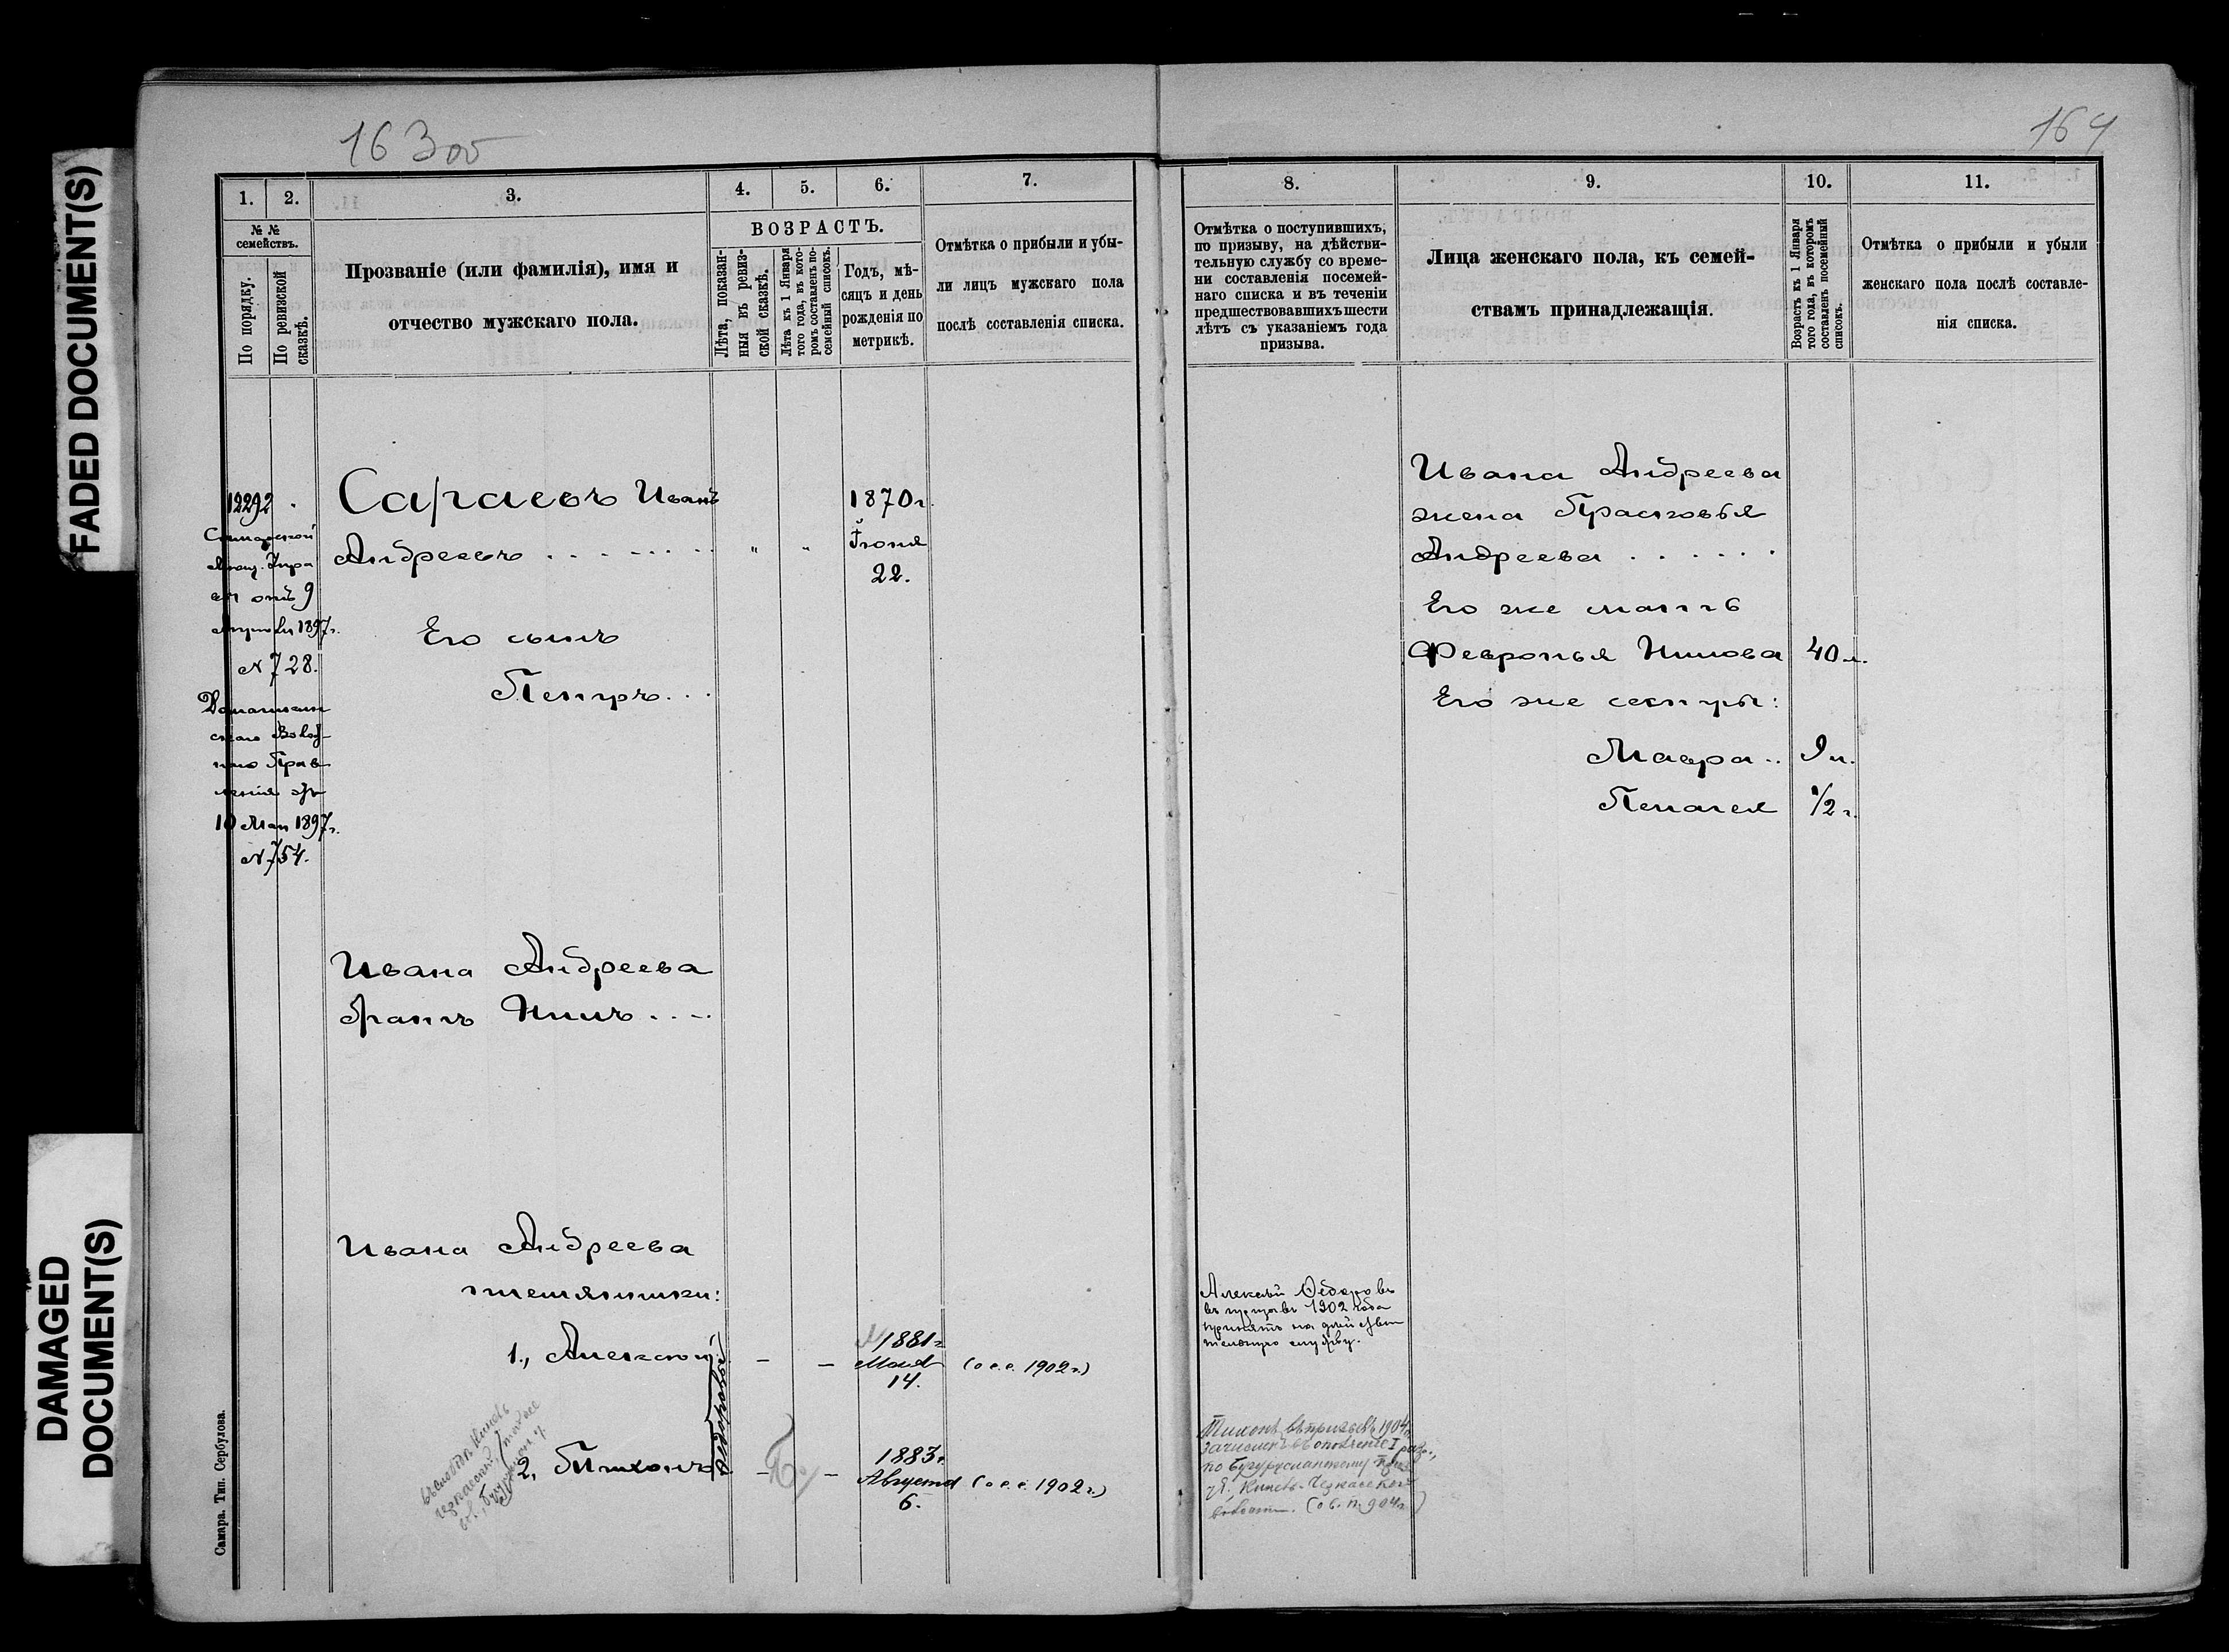 FADED DOCUMENT(S)
DAMAGED
DOCUMENT(S)
163об
1. 2. 3. 4. 5. 6. 7.
№ №
семействъ.
По порядку.
По ревизской
сказкѣ.
Прозваніе (или фамилія), имя и
отчество мужскаго пола.
ВОЗРАСТЪ.
Лѣта, показан-
ныя въ ревиз-
ской сказкѣ.
Лѣта къ 1 Января
того года, въ кото-
ромъ составленъ по-
семейный списокъ.
Годъ, мѣ-
сяцъ и день
рожденія по
метрикѣ.
Отмѣтка о прибыли и убы-
ли лицъ мужскаго пола
послѣ составленія списка.
12292
Самарской
отъ 9
1897г.
№ 728.
Волост-
наго Прав
ленія
10 Мая 1897г.
№ 754.
Сараевъ Иванъ
Андреевъ
" "
1870г.
Іюня
22.
Его сынъ
Петръ
Ивана Андреева
братъ Нилъ
Ивана Андреева
племянники:
1., Алексѣй
Федоровы
1881г.
14.
(о.с.с. 1902г.)
2, Тихонъ
1883г.
Августа
6.
(о.с.с. 1902г.)
Самара. Тип. Сербулова.
164
8. 9. 10. 11.
Отмѣтка о поступившихъ,
по призыву, на дѣйстви-
тельную службу со време-
ни составленія посемей-
наго списка и въ теченіи
предшествовавшихъ шести
лѣтъ съ указаніемъ года
призыва.
Лица женскаго пола, къ семей-
ствамъ принадлежащія.
Возрастъ къ 1 Января
того года, въ которомъ
составленъ посемейный
списокъ.
Отмѣтка о прибыли и убыли
женскаго пола послѣ составле-
нія списка.
Ивана Андреева
жена Прасковья
Андреева
Его же мать
Февронья Нилова 40 л.
Его же сестры:
Мавра 9 л.
Пелагея 1/2 г.
Алексѣй Ѳедоровъ
въ призывъ 1902 года
принятъ на дѣйстви
тельную службу.
Тихонъ въ призывъ 1904г.
зачисленъ въ ополченіе I разр.,
по Бугурусланскому
у., Кинель-Черкасской
волости.